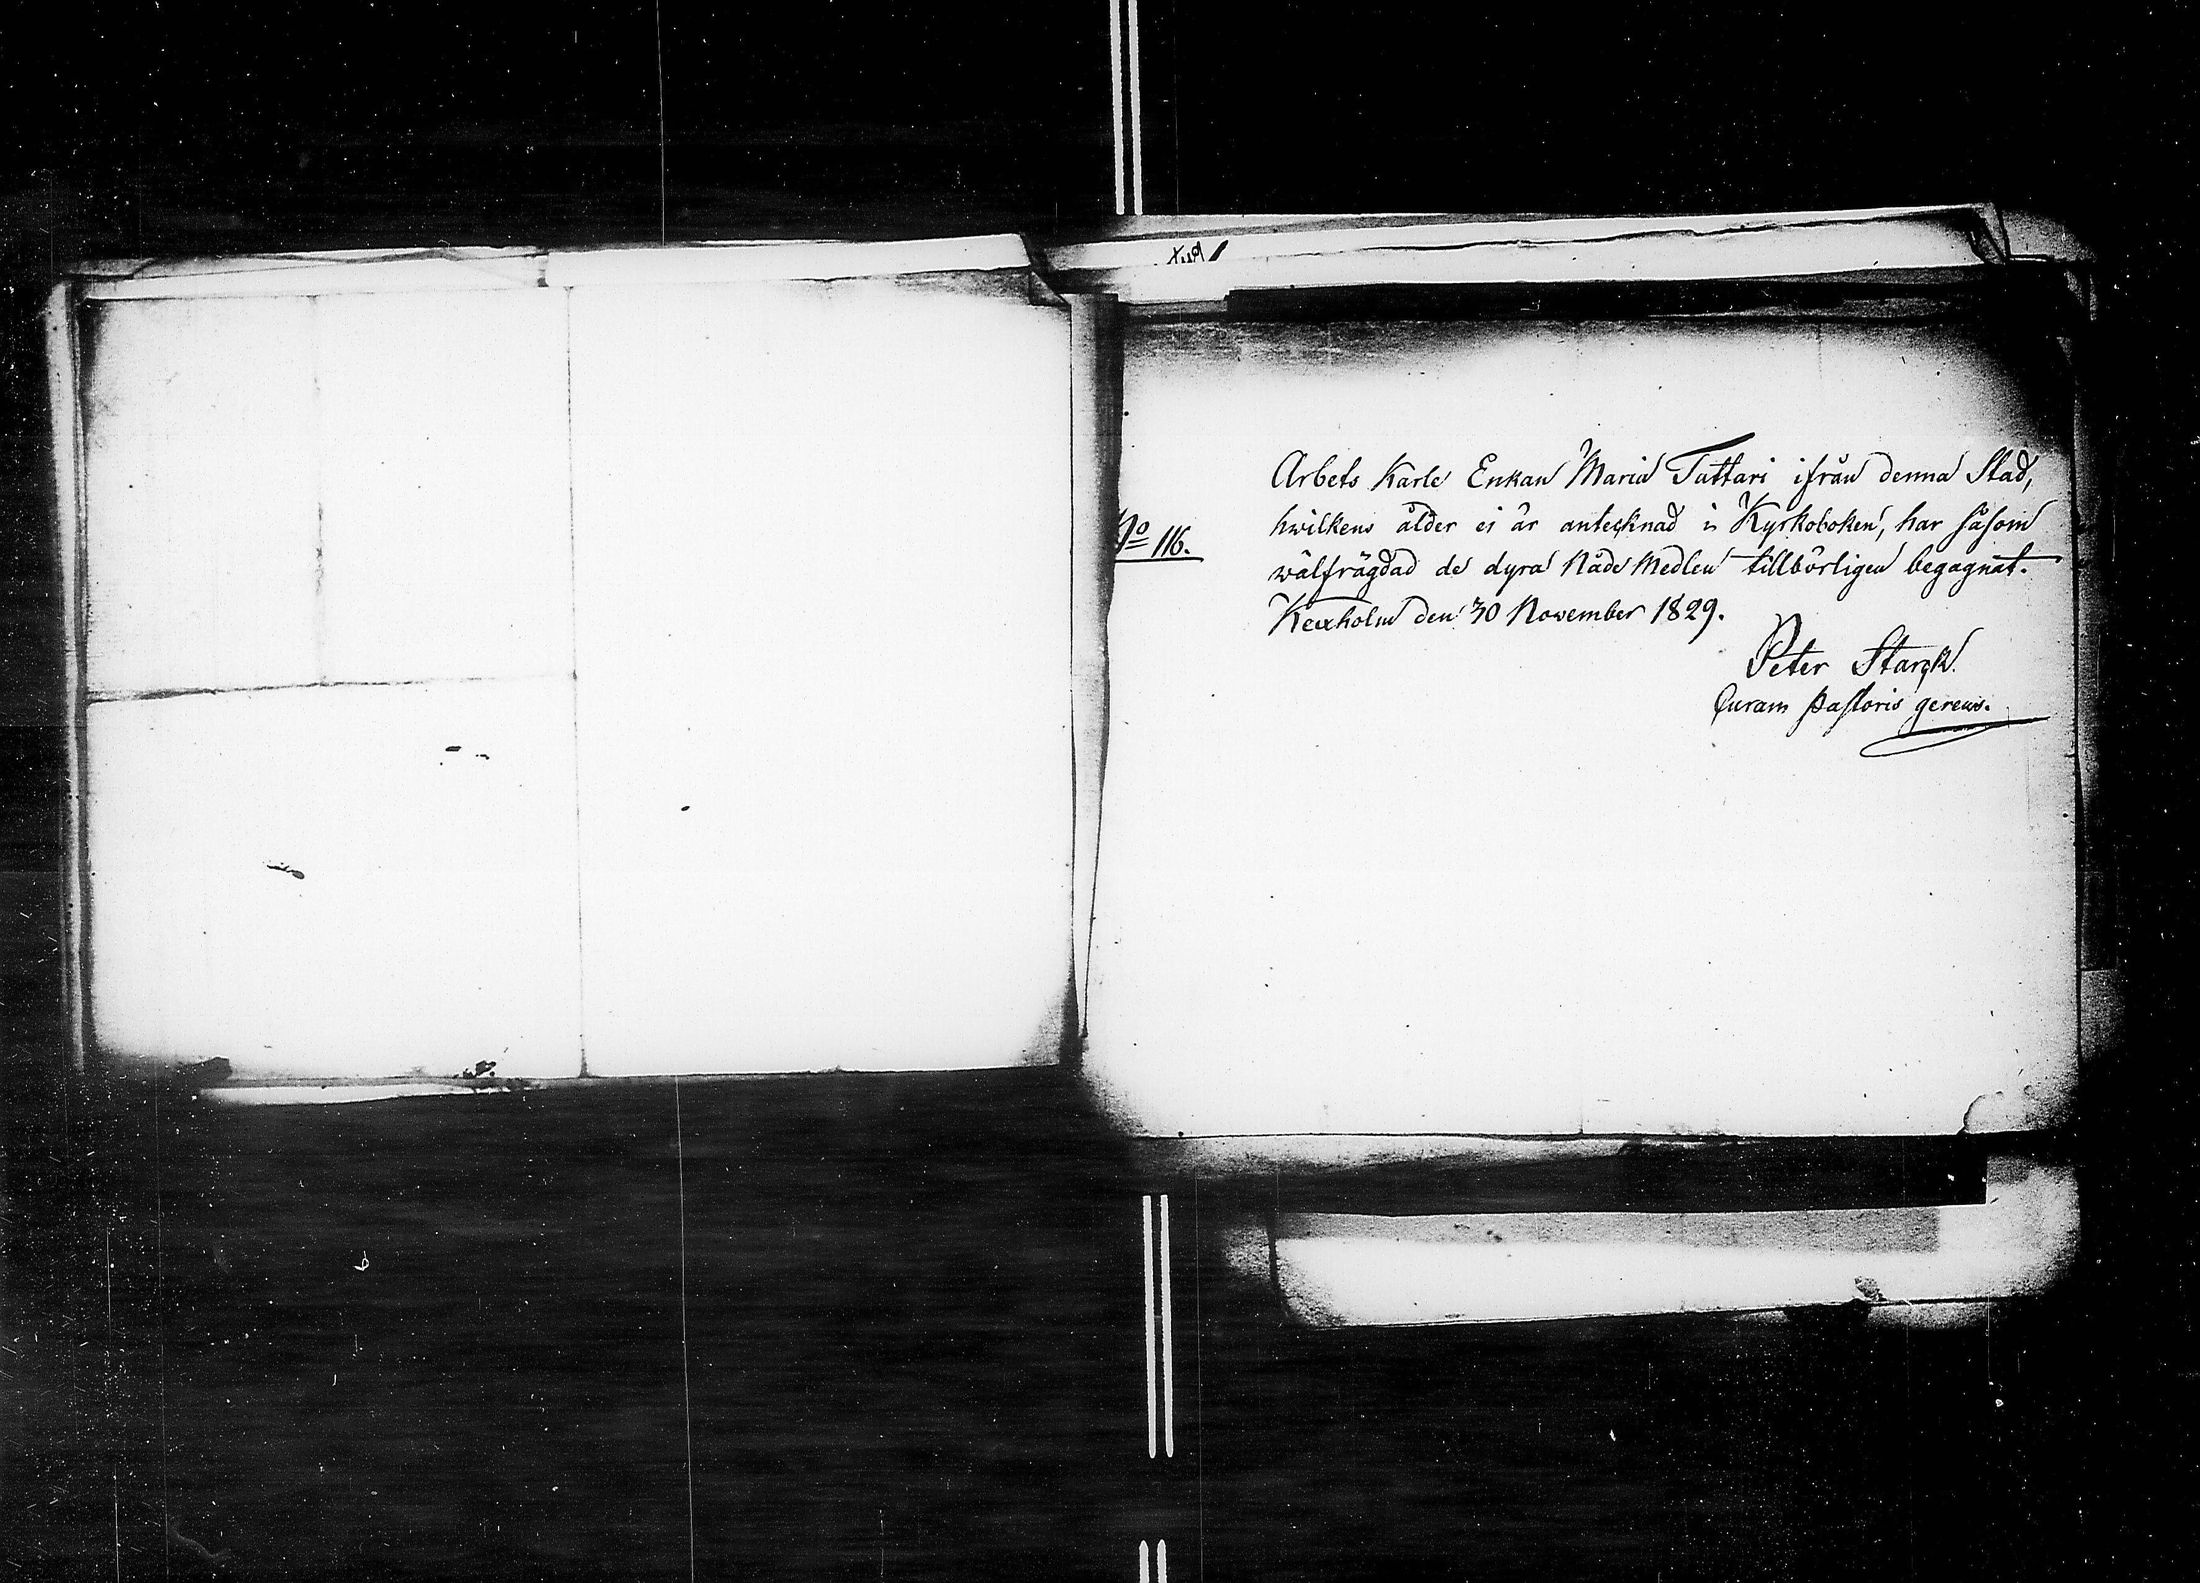 Arbets Karls Enkan Maria Tattari ifrån denna Stad,
hwilkens ålder ei är antecknad i Kyrkoboken, har såsom
No 116.
wälfrägdad de dyra Nåde Medlen tillbörligen begagnat.
Kexholm den 30 November 1829.
Peter Starck.
Curam Pastoris gerens.